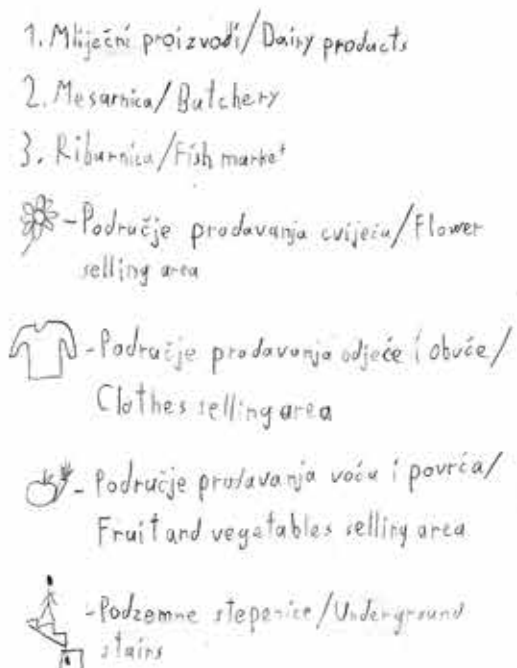 1. Mliječni proizvodi/Dairy products
2. Mesarnica/Butchery
3. Ribarnica/Fish market
-Područje prodavanja cvijeća/Flower
selling area
-Područje prodavanja odjeće i obuće/
Clothes selling area
-Područje prodavanja voća i povrća/
Fruit and vegetables selling area
-Podzemne stepenice/Underground
stairs